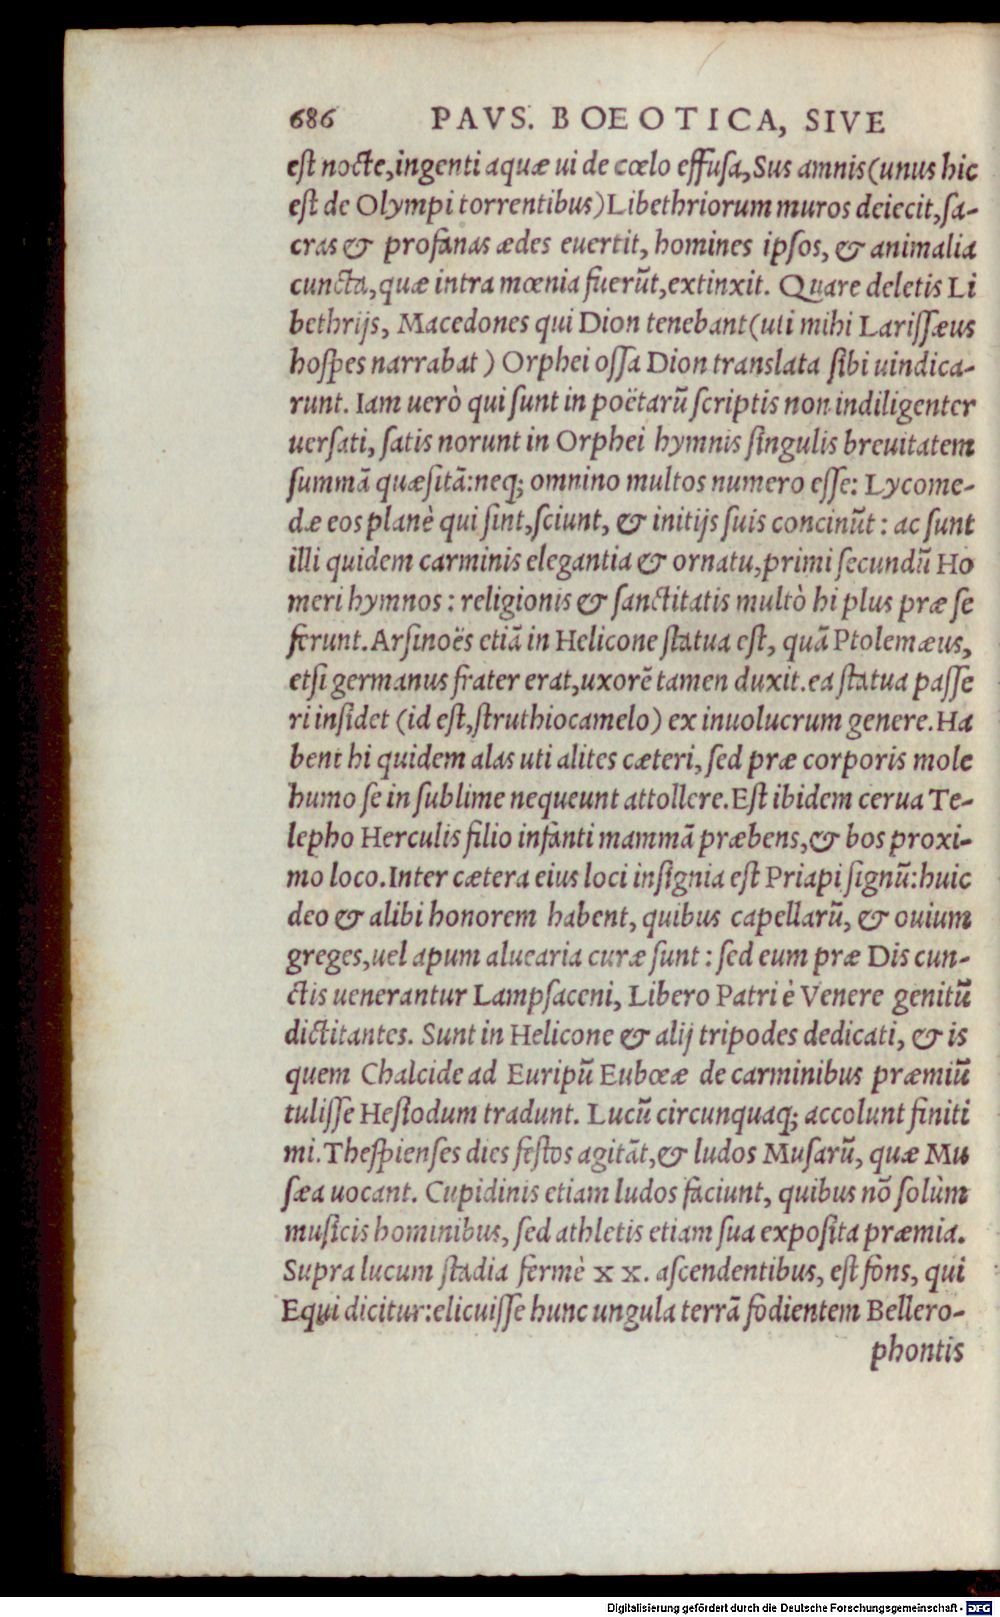 686 PAVS. BOEOTICA, SIVE
est nocte, ingenti aquæ ui de cœlo effusa, Sus amnis (unus hic
est de Olympi torrentibus) Libethriorum muros deiecit, sa-
cras & profanas ædes euertit, homines ipsos, & animalia
cuncta, quæ intra mœnia fuerūt, extinxit. Quare deletis Li
bethrijs, Macedones qui Dion tenebant (uti mihi Larissæus
hospes narrabat) Orphei ossa Dion translata sibi uindica-
runt. Iam uerò qui sunt in poëtarū scriptis non indiligenter
uersati, satis norunt in Orphei hymnis singulis breuitatem
summā quæsitā: neq; omnino multos numero esse: Lycome-
dæ eos planè qui sint, sciunt, & initijs suis concinūt: ac sunt
illi quidem carminis elegantia & ornatu, primi secundū Ho
meri hymnos: religionis & sanctitatis multò hi plus præ se
ferunt. Arsinoës etiā in Helicone statua est, quā Ptolemæus,
etsi germanus frater erat, uxorē tamen duxit. ea statua passe
ri insidet (id est, struthiocamelo) ex inuolucrum genere. Ha
bent hi quidem alas uti alites cæteri, sed præ corporis mole
humo se in sublime nequeunt attollere. Est ibidem cerua Te-
lepho Herculis filio infanti mammā præbens, & bos proxi-
mo loco. Inter cætera eius loci insignia est Priapi signū: huic
deo & alibi honorem habent, quibus capellarū, & ouium
greges, uel apum aluearia curæ sunt: sed eum præ Dis cun-
ctis uenerantur Lampsaceni, Libero Patri è Venere genitū
dictitantes. Sunt in Helicone & alij tripodes dedicati, & is
quem Chalcide ad Euripū Eubœæ de carminibus præmiū
tulisse Hesiodum tradunt. Lucū circunquaq; accolunt finiti
mi. Thespienses dies festos agitāt, & ludos Musarū, quæ Mu
sæa uocant. Cupidinis etiam ludos faciunt, quibus nō solùm
musicis hominibus, sed athletis etiam sua exposita præmia.
Supra lucum stadia fermè x x. ascendentibus, est fons, qui
Equi dicitur: elicuisse hunc ungula terrā fodientem Bellero-
phontis
Digitalisierung gefördert durch die Deutsche Forschungsgemeinschaft - DFG